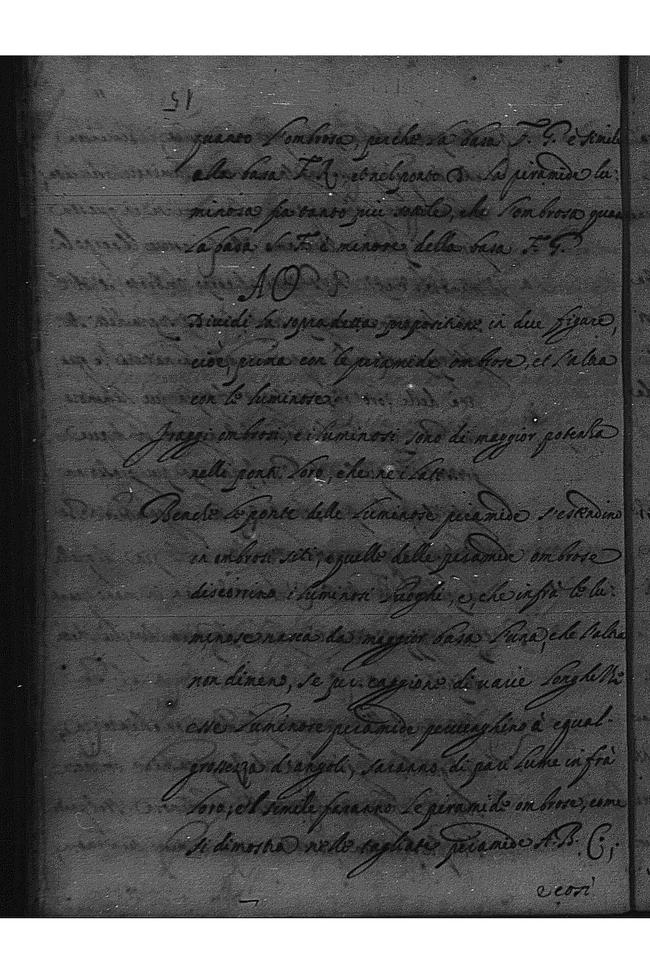 15
quanto l'ombrosa, perche la basa F. G. è simile
alla basa F. R., et nel ponto D. la piramide lu:
minosa fia tanto più sottile, che l'ombrosa quan
la basa F. è minore della basa F. G.
AO
Dividi la sopradetta proposizione in due figure,
cioè, prima con le piramide ombrose, et l'altra
con le luminose
I raggi ombrosi, e i luminosi sono di maggior potenza
nelle ponte loro, che ne i lati
Benche le ponte delle luminose piramide s'estendino
in ombrosi siti, e quelle delle piramide ombrose
discorrino i luminosi luoghi, e, che infrà le lu:
minose nasca da maggior basa l'una, che l'altra
non dimeno, se per caggione di varie longhezze
esse luminose piramide pervenghino à equal
grossezza d'angoli, saranno di pari lume infrà
loro, e'l simile faranno le piramide ombrose, come
si dimostra nelle tagliate piramide A. B. C;
e così